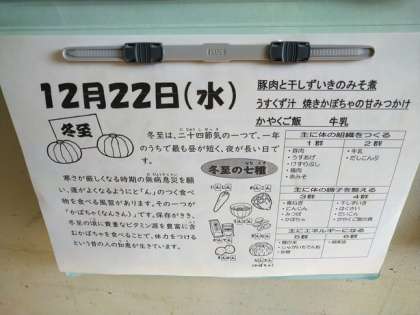 12月22日(水)
豚肉と干しずいきのみそ煮
うすくず汁 焼きかぼちゃの甘みつかけ
かやくご飯 牛乳
冬至
冬至は、二十四節気の一つで、一年
のうちで最も昼が短く、夜が長い日で
す。
寒さが厳しくなる時期の無病息災を願
い、運がよくなるようにと「ん」のつく食べ
物を食べる風習があります。その一つが
「かぼちゃ(なんきん)」です。保存がきき、
冬至の頃に貴重なビタミン源を豊富に含
むかぼちゃを食べることで、体力をつける
という昔の人の知恵が生きています。
冬至の七種
(かぼちゃ)
主に体の組織をつくる
1群 2群
・豚肉 ・牛乳
・うすあげ ・だしこんぶ
・けずりぶし
・鶏肉
・赤みそ
主に体の調子を整える
3群 4群
・青ねぎ ・干しずいき
・にんじん ・はくさい
・みつば ・だいこん
・かぼちゃ
主にエネルギーになる
5群 6群